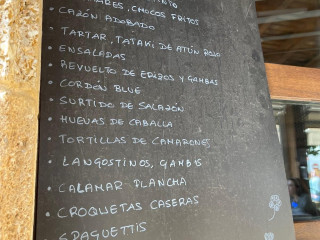 ARES, CHOCOS FRITOS
• CAZÓN ADOBADO
• TARTAR, TATAKI DE ATÚN ROJO
• ENSALADAS
• REVUELTO DE ERIZOS Y GAMBAS
• CORDON BLUE
• SURTIDO DE SALAZÓN
• HUEVAS DE CABALLA
• TORTILLAS DE CAMARONES
• LANGOSTINOS, GAMBAS
• CALAMAR PLANCHA
• CROQUETAS CASERAS
• SPAGUETTIS